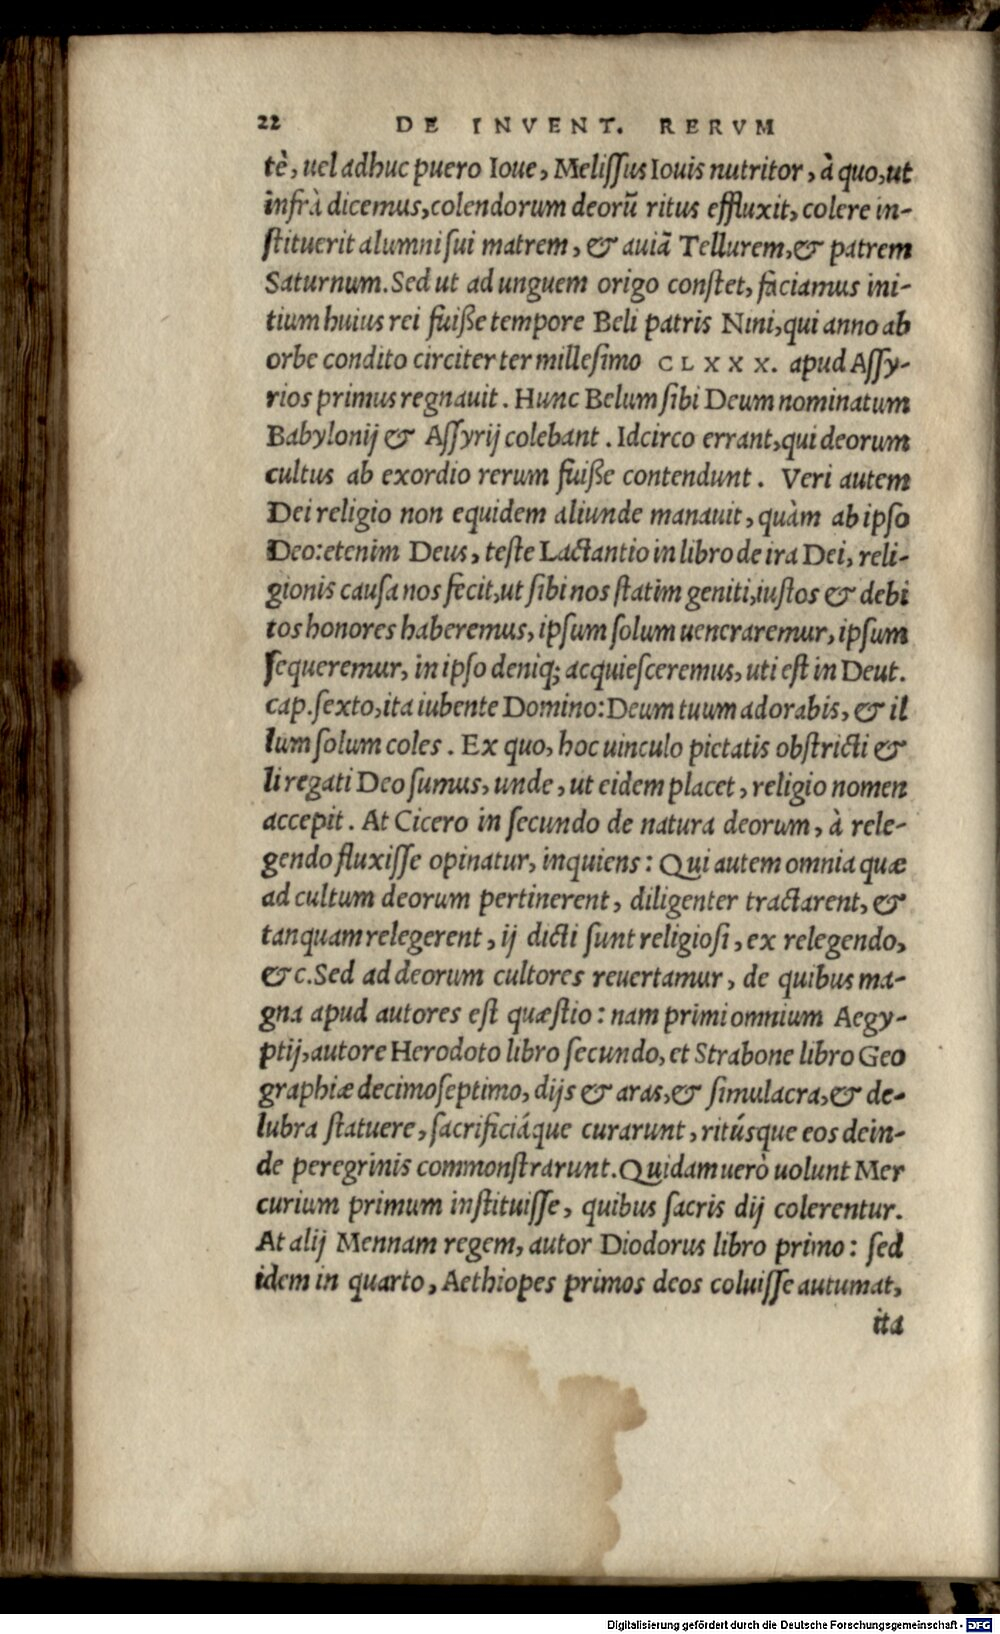 22 DE INVENT. RERVM
tè, uel adhuc puero Ioue, Melissus Iouis nutritor, à quo, ut
infrà dicemus, colendorum deorũ ritus effluxit, colere in-
stituerit alumni sui matrem, & auiã Tellurem, & patrem
Saturnum. Sed ut ad unguem origo constet, faciamus ini-
tium huius rei fuiße tempore Beli patris Nini, qui anno ab
orbe condito circiter ter millesimo CLXXX. apud Assy-
rios primus regnauit. Hunc Belum sibi Deum nominatum
Babylonij & Assyrij colebant. Idcirco errant, qui deorum
cultus ab exordio rerum fuiße contendunt. Veri autem
Dei religio non equidem aliunde manauit, quàm ab ipso
Deo: etenim Deus, teste Lactantio in libro de ira Dei, reli-
gionis causa nos fecit, ut sibi nos statim geniti, iustos & debi
tos honores haberemus, ipsum solum ueneraremur, ipsum
sequeremur, in ipso deniq; acquiesceremus, uti est in Deut.
cap. sexto, ita iubente Domino: Deum tuum adorabis, & il
lum solum coles. Ex quo, hoc uinculo pietatis obstricti &
li regati Deo sumus, unde, ut eidem placet, religio nomen
accepit. At Cicero in secundo de natura deorum, à rele-
gendo fluxisse opinatur, inquiens: Qui autem omnia quæ
ad cultum deorum pertinerent, diligenter tractarent, &
tanquam relegerent, ij dicti sunt religiosi, ex relegendo,
&c. Sed ad deorum cultores reuertamur, de quibus ma-
gna apud autores est quæstio: nam primi omnium Aegy-
ptij, autore Herodoto libro secundo, et Strabone libro Geo
graphiæ decimoseptimo, dijs & aras, & simulacra, & de-
lubra statuere, sacrificiáque curarunt, ritúsque eos dein-
de peregrinis commonstrarunt. Quidam uerò uolunt Mer
curium primum instituisse, quibus sacris dij colerentur.
At alij Mennam regem, autor Diodorus libro primo: sed
idem in quarto, Aethiopes primos deos coluisse autumat,
ita
Digitalisierung gefördert durch die Deutsche Forschungsgemeinschaft - DFG